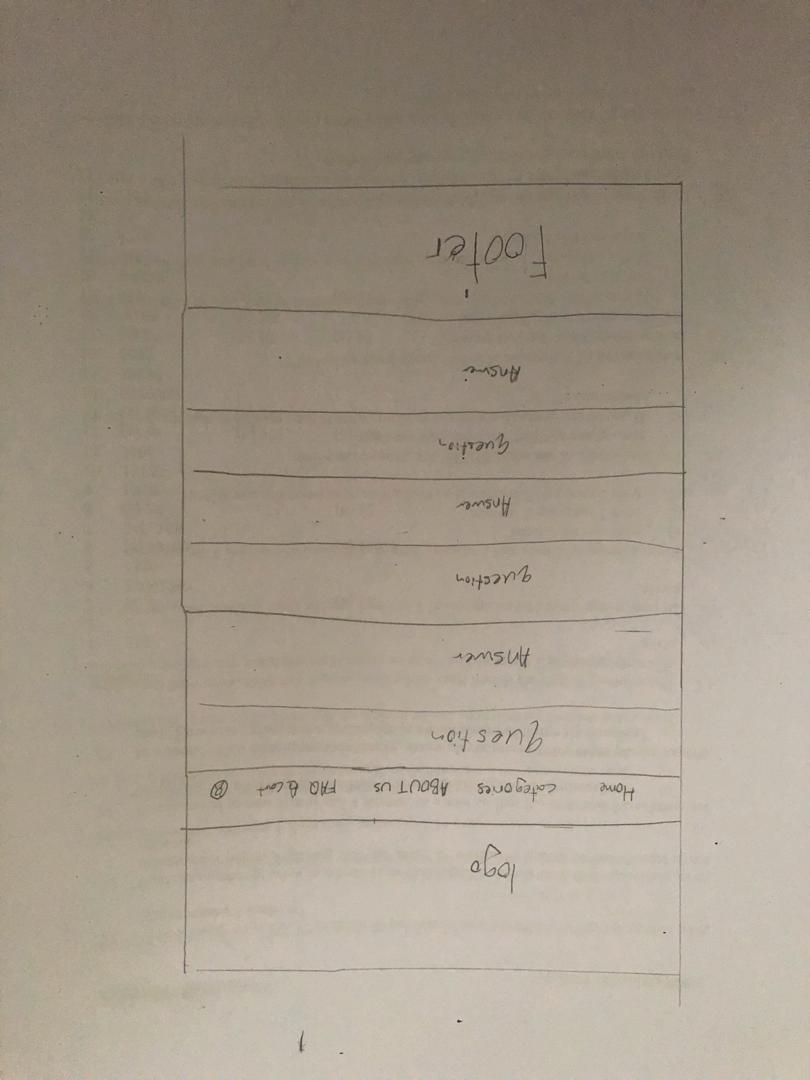 logo
Home categories ABOUT US FAQ & cart
Question
Answer
question
Answer
question
Answer
Footer